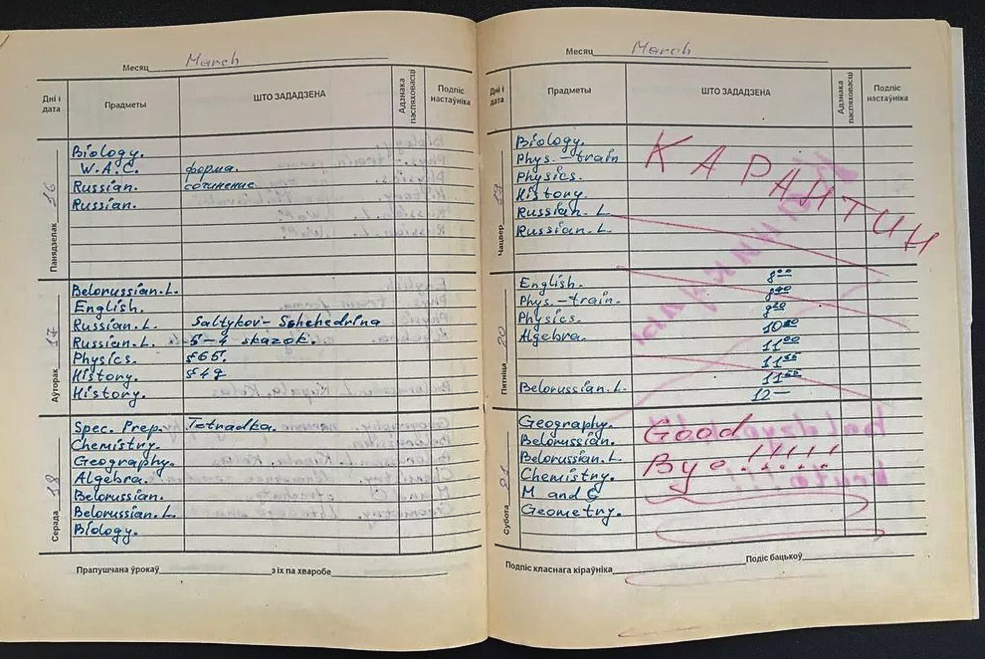 Месяц March
Дні і дата Прадметы ШТО ЗАДАДЗЕНА Адзнака паспяховасці Подпіс настаўніка
Панядзелак 16
Biology.
W.A.C. форма.
Russian. сочинение
Russian.
Аўторак 17
Belorussian.L.
English.
Russian.L. Saltykov-Schchedrina
Russian.L. 5-4 skazok.
Physics. §65.
History. §49
History.
Серада 18
Spec. Prep. Tetradka.
Chemistry.
Geography.
Algebra.
Belorussian.
Belorussian.L.
Biology.
Прапушчана ўрокаў з іх па хваробе
Месяц March
Дні і дата Прадметы ШТО ЗАДАДЗЕНА Адзнака паспяховасці Подпіс настаўніка
Чацвер
Biology.
Phys.-train
Physics.
History.
Russian.L
Russian.L.
КАРАНТИН
Пятніца 20
English. 8⁰⁰
Phys-train.
Physics.
Algebra. 10
11⁰⁰
11
11
Belorussian.L. 12—
Субота 21
Geography. Good
Belorussian.
Belorussian.L Bye!!!!!!
Chemistry.
M and G
Geometry.
Подпіс класнага кіраўніка Подіс бацькоў